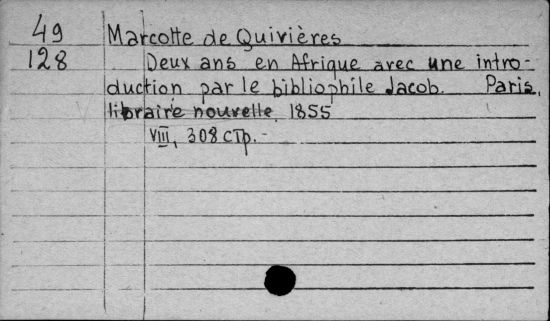 49 Marcotte de Quivières
128 Deux ans en Afrique avec une intro-
duction par le bibliophile Jacob. Paris,
libraire nouvelle, 1855
VIII, 308 стр. -